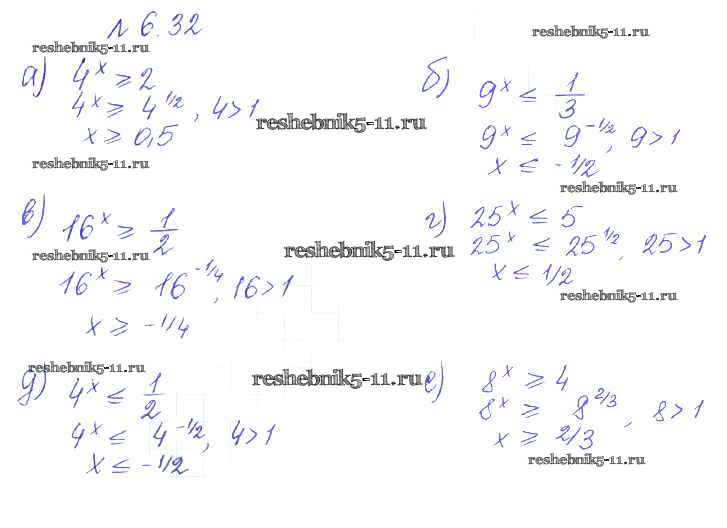 № 6.32
reshebnik5-11.ru
reshebnik5-11.ru
а) 4^x ≥ 2
4^x ≥ 4^1/2, 4>1
x ≥ 0,5
reshebnik5-11.ru
reshebnik5-11.ru
б) 9^x ≤ 1/3
9^x ≤ 9^-1/2, 9>1
x ≤ -1/2
reshebnik5-11.ru
в) 16^x ≥ 1/2
reshebnik5-11.ru
16^x ≥ 16^-1/4, 16>1
x ≥ -1/4
reshebnik5-11.ru
г) 25^x ≤ 5
25^x ≤ 25^1/2, 25>1
x ≤ 1/2
reshebnik5-11.ru
reshebnik5-11.ru
д) 4^x ≤ 1/2
4^x ≤ 4^-1/2, 4>1
x ≤ -1/2
reshebnik5-11.ru
е) 8^x ≥ 4
8^x ≥ 8^2/3, 8>1
x ≥ 2/3
reshebnik5-11.ru